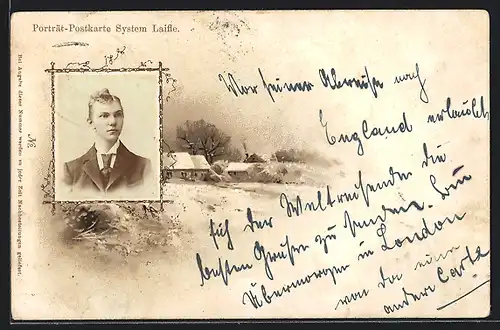 Porträt-Postkarte System Laifle.
Bei Angabe dieser Nummer werden zu jeder Zeit Nachbestellungen geliefert.
No
Vor seiner Abreise nach
England erlaubt
sich der Weltreisende die
besten Grüße zu senden. Bin
Übermorgen in London
von da eine
andere Carte